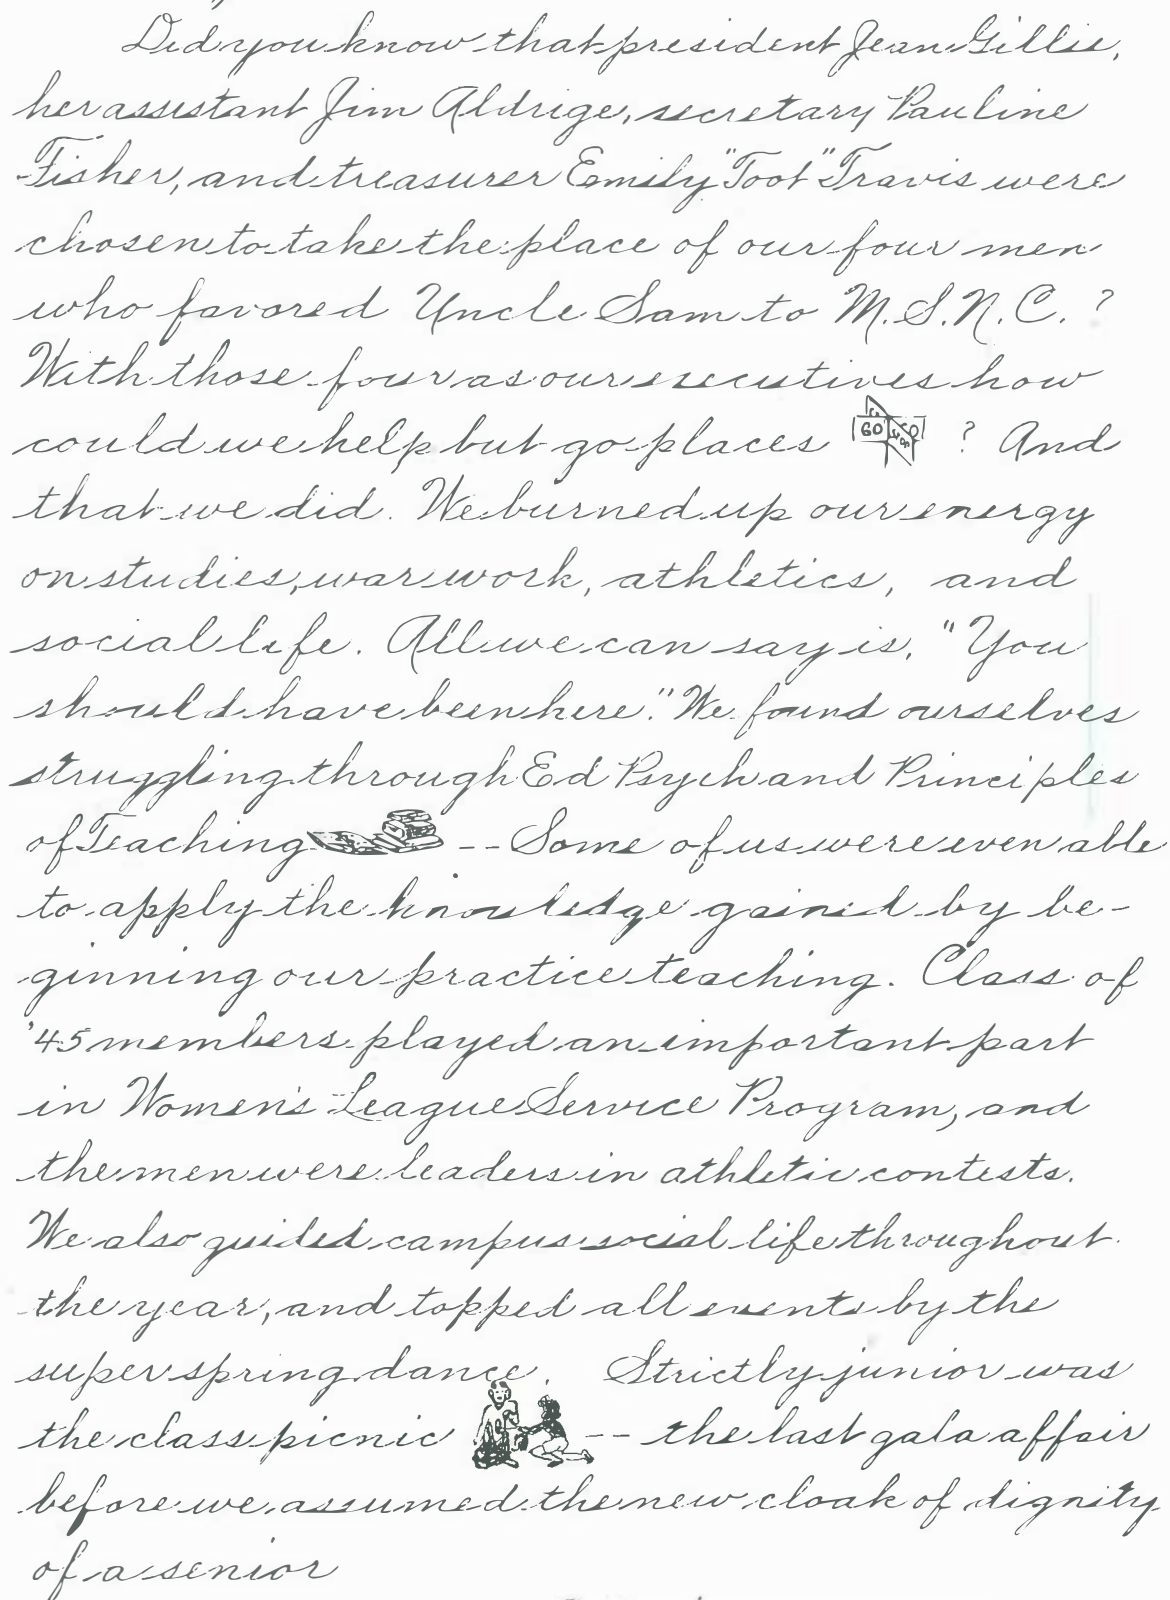 Did you know that president Jean Gillis,
her assistant Jim Aldrige, secretary Pauline
Fisher, and treasurer Emily "Toot" Travis were
chosen to take the place of our four men
who favored Uncle Sam to M.S.N.C. ?
With those four as our executives how
could we help but go places GO STOP GO ? And
that we did. We burned up our energy
on studies, war work, athletics, and
social life. All we can say is, "You
should have been here." We found ourselves
struggling through Ed Psych and Principles
of Teaching -- Some of us were even able
to apply the knowledge gained by be-
ginning our practice teaching. Class of
'45 members played an important part
in Women's League Service Program, and
the men were leaders in athletic contests.
We also guided campus social life throughout
the year, and topped all events by the
super spring dance. Strictly junior was
the class picnic -- the last gala affair
before we assumed the new cloak of dignity
of a senior